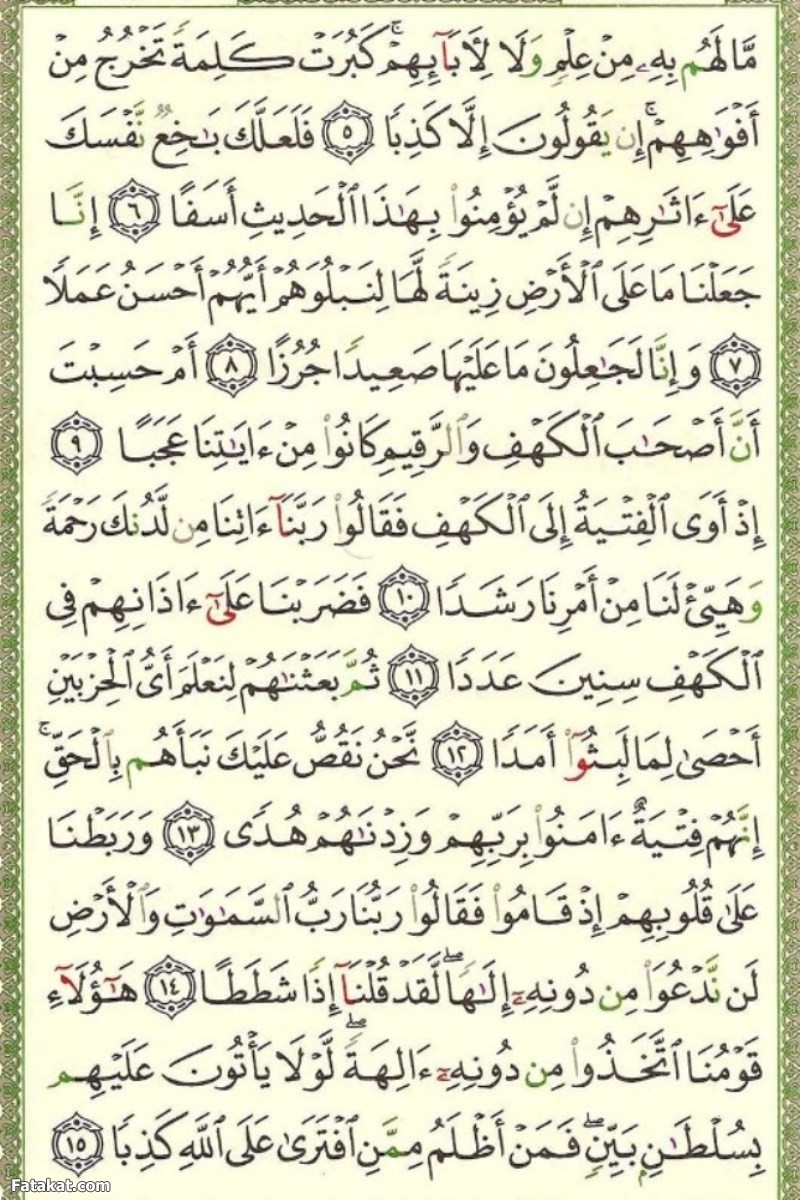 مَّا لَهُم بِهِۦ مِنۡ عِلۡمٖ وَلَا لِأٓبَآئِهِمۡۚ كَبُرَتۡ كَلِمَةٗ تَخۡرُجُ مِنۡ
أَفۡوَٰهِهِمۡۚ إِن يَقُولُونَ إِلَّا كَذِبٗا ٥ فَلَعَلَّكَ بَٰخِعٞ نَّفۡسَكَ
عَلَىٰٓ ءَاثَٰرِهِمۡ إِن لَّمۡ يُؤۡمِنُواْ بِهَٰذَا ٱلۡحَدِيثِ أَسَفًا ٦ إِنَّا
جَعَلۡنَا مَا عَلَى ٱلۡأَرۡضِ زِينَةٗ لَّهَا لِنَبۡلُوَهُمۡ أَيُّهُمۡ أَحۡسَنُ عَمَلٗا
٧ وَإِنَّا لَجَٰعِلُونَ مَا عَلَيۡهَا صَعِيدٗا جُرُزًا ٨ أَمۡ حَسِبۡتَ
أَنَّ أَصۡحَٰبَ ٱلۡكَهۡفِ وَٱلرَّقِيمِ كَانُواْ مِنۡ ءَايَٰتِنَا عَجَبًا ٩
إِذۡ أَوَى ٱلۡفِتۡيَةُ إِلَى ٱلۡكَهۡفِ فَقَالُواْ رَبَّنَآ ءَاتِنَا مِن لَّدُنكَ رَحۡمَةٗ
وَهَيِّئۡ لَنَا مِنۡ أَمۡرِنَا رَشَدٗا ١٠ فَضَرَبۡنَا عَلَىٰٓ ءَاذَانِهِمۡ فِي
ٱلۡكَهۡفِ سِنِينَ عَدَدٗا ١١ ثُمَّ بَعَثۡنَٰهُمۡ لِنَعۡلَمَ أَيُّ ٱلۡحِزۡبَيۡنِ
أَحۡصَىٰ لِمَا لَبِثُوٓاْ أَمَدٗا ١٢ نَّحۡنُ نَقُصُّ عَلَيۡكَ نَبَأَهُم بِٱلۡحَقِّۚ
إِنَّهُمۡ فِتۡيَةٌ ءَامَنُواْ بِرَبِّهِمۡ وَزِدۡنَٰهُمۡ هُدٗى ١٣ وَرَبَطۡنَا
عَلَىٰ قُلُوبِهِمۡ إِذۡ قَامُواْ فَقَالُواْ رَبُّنَا رَبُّ ٱلسَّمَٰوَٰتِ وَٱلۡأَرۡضِ
لَن نَّدۡعُوَاْ مِن دُونِهِۦٓ إِلَٰهٗاۖ لَّقَدۡ قُلۡنَآ إِذٗا شَطَطًا ١٤ هَٰٓؤُلَآءِ
قَوۡمُنَا ٱتَّخَذُواْ مِن دُونِهِۦٓ ءَالِهَةٗۖ لَّوۡلَا يَأۡتُونَ عَلَيۡهِم
بِسُلۡطَٰنِۭ بَيِّنٖۖ فَمَنۡ أَظۡلَمُ مِمَّنِ ٱفۡتَرَىٰ عَلَى ٱللَّهِ كَذِبٗا ١٥
Fatakat.com